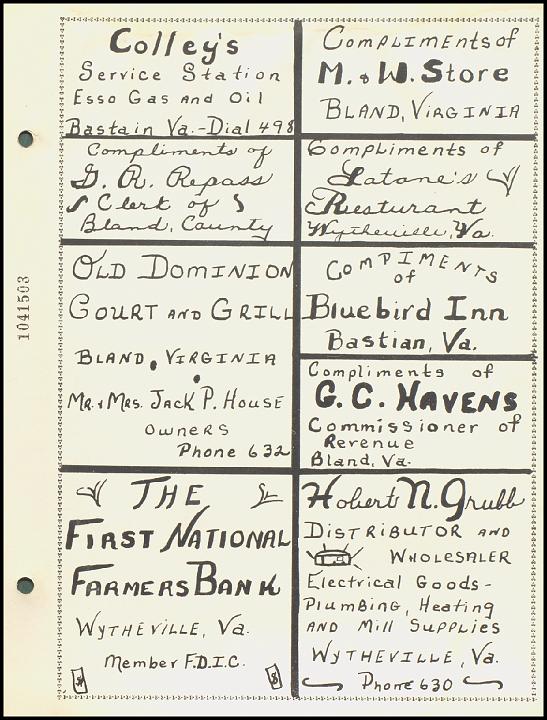 Colley's
Service Station
Esso Gas and Oil
Bastain Va.-Dial 498
Compliments of
G. R. Repass
Clerk of
Bland, County
OLD DOMINION
COURT AND GRILL
BLAND, VIRGINIA
MR. & MRS. JACK P. HOUSE
OWNERS
Phone 632
THE
FIRST NATIONAL
FARMERS BANK
WYTHEVILLE, Va.
Member F.D.I.C.
COMPLIMENTS of
M. & W. Store
BLAND, VIRGINIA
Compliments of
Latane's
Resturant
Wytheville, Va.
COMPIMENTS
of
Bluebird Inn
Bastian, Va.
Compliments of
G. C. HAVENS
Commissioner of
Revenue
Bland, Va.
Hobert N. Grubb
DISTRIBUTOR AND
WHOLESALER
Electrical Goods-
Plumbing, Heating
AND Mill Supplies
WYTHEVILLE, Va.
Phone 630
1041503